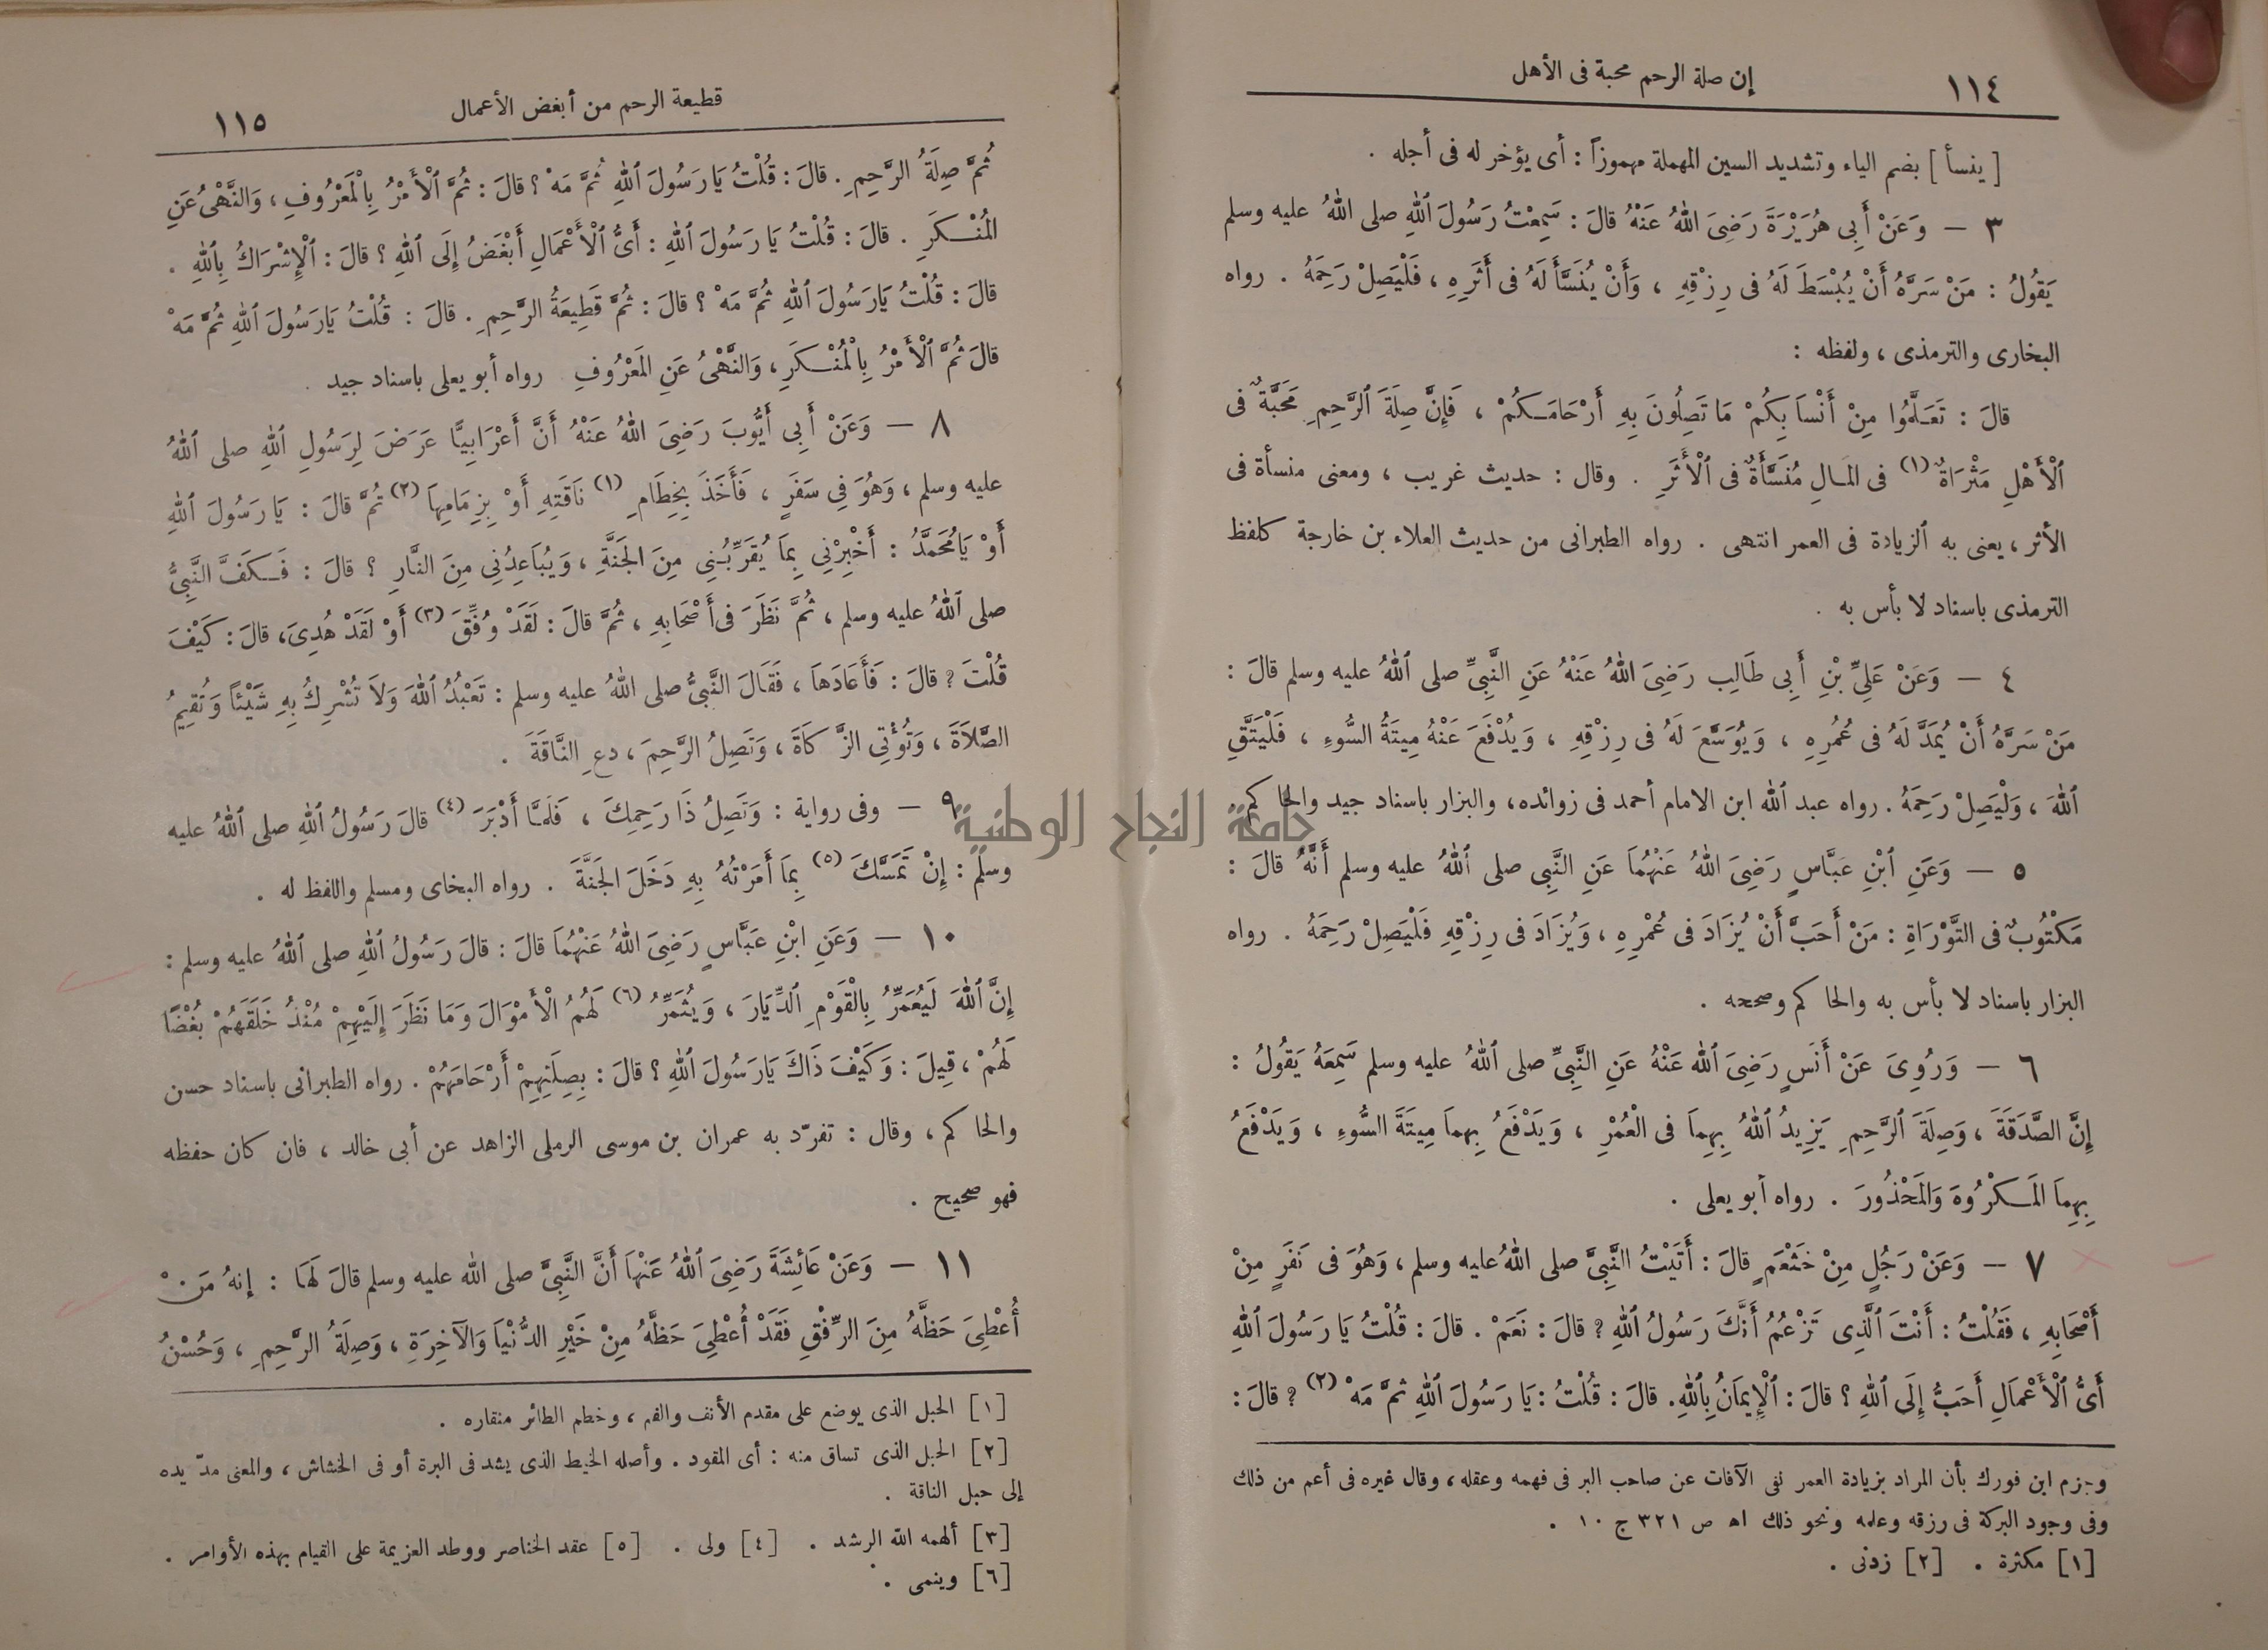 ١١٤
إن صلة الرحم محبة فى الأهل
[ ينسأ ] بضم الياء وتشديد السين المهملة مهموزاً : أى يؤخر له فى أجله .
٣ — وَعَنْ أَبِى هُرَيْرَةَ رَضِىَ اللهُ عَنْهُ قالَ : سَمِعْتُ رَسُولَ اللهِ صلى اللهُ عليه وسلم
يَقُولُ : مَنْ سَرَّهُ أَنْ يُبْسَطَ لَهُ فى رِزْقِهِ ، وَأَنْ يُنَسَّأَ لَهُ فى أَثَرِهِ ، فَلْيَصِلْ رَحِمَهُ . رواه
البخارى والترمذى ، ولفظه :
قالَ : تَعَلَّمُوا مِنْ أَنْسَابِكُمْ مَاتَصِلُونَ بِهِ أَرْحَامَكُمْ ، فَإِنَّ صِلَةَ الرَّحِمِ مَحَبَّةٌ فى
الْأَهْلِ مَثْرَاةٌ (١) فى المَالِ مُنَسَّأَةٌ فى الْأَثَرِ . وقال : حديث غريب ، ومعنى منسأة فى
الأثر ، يعنى به الزيادة فى العمر انتهى . رواه الطبرانى من حديث العلاء بن خارجة كلفظ
الترمذى باسناد لا بأس به .
٤ — وَعَنْ عَلِىِّ بْنِ أَبِى طَالِبٍ رَضِىَ اللهُ عَنْهُ عَنِ النَّبِىِّ صلى اللهُ عليه وسلم قالَ :
مَنْ سَرَّهُ أَنْ يُمَدَّ لَهُ فى عُمُرِهِ ، وَيُوَسَّعَ لَهُ فى رِزْقِهِ ، وَيُدْفَعَ عَنْهُ مِيتَةُ السُّوءِ ، فَلْيَتَّقِ
اللهَ ، وَلْيَصِلْ رَحِمَهُ . رواه عبد الله ابن الامام أحمد فى زوائده، والبزار باسناد جيد والحاكم
٥ — وَعَنِ ابْنِ عَبَّاسٍ رَضِىَ اللهُ عَنْهُمَا عَنِ النَّبِى صلى اللهُ عليه وسلم أَنَّهُ قالَ :
مَكْتُوبٌ فى التَّوْرَاةِ : مَنْ أَحَبَّ أَنْ يُزَادَ فى عُمْرِهِ ، وَيُزَادَ فى رِزْقِهِ فَلْيَصِلْ رَحِمَهُ . رواه
البزار باسناد لا بأس به والحاكم وصححه .
٦ — وَرُوِىَ عَنْ أَنَسٍ رَضِىَ الله عَنْهُ عَنِ النَّبِىِّ صلى اللهُ عليه وسلم سَمِعَهُ يَقُولُ :
إِنَّ الصَّدَقَةَ ، وَصِلَةَ الرَّحِمِ يَزِيدُ اللهُ بِهِمَا فى الْعُمْرِ ، وَيَدْفَعُ بِهِمَا مِيتَةَ السُّوءِ ، وَيَدْفَعُ
بِهِمَا المَكْرُوهَ وَالمَحْذُورَ . رواه أبو يعلى .
٧ — وَعَنْ رَجُلٍ مِنْ خَثْعَمٍ قالَ : أَتَيْتُ النَّبِىَّ صلى اللهُ عليه وسلم ، وَهُوَ فى نَفَرٍ مِنْ
أَصْحَابِهِ ، فَقُلْتُ : أَنْتَ الَّذِى تَزْعُمُ أَنَّكَ رَسُولُ اللهِ ؟ قالَ : نَعَمْ . قالَ : قُلْتُ يَا رَسُولَ اللهِ
أَىُّ الْأَعْمَالِ أَحَبُّ إِلَى اللهِ ؟ قالَ : الْإِيمَانُ بِاللهِ. قالَ : قُلْتُ : يَا رَسُولَ اللهِ ثمَّ مَهْ (٢) ؟ قالَ :
وجزم ابن فورك بأن المراد بزيادة العمر نفى الآفات عن صاحب البر فى فهمه وعقله ، وقال غيره فى أعم من ذلك
وفى وجود البركة فى رزقه وعلمه ونحو ذلك اه ص ٣٢١ ج ١٠ .
[١] مكثرة . [٢] زدنى .
جامعة النجاح الوطنية
قطيعة الرحم من أبغض الأعمال
١١٥
ثُمَّ صِلَةُ الرَّحِمِ . قالَ : قُلْتُ يَارَسُولَ اللهِ ثُمَّ مَهْ ؟ قالَ : ثُمَّ الْأَمْرُ بِالْمَعْرُوفِ ، وَالنَّهْىُ عَنِ
المُنْكَرِ . قالَ : قُلْتُ يَا رَسُولَ اللهِ : أَىُّ الْأَعْمَالِ أَبْغَضُ إِلَى اللهِ ؟ قالَ : الْإِشْرَاكُ بِاللهِ .
قالَ : قُلْتُ يَارَسُولَ اللهِ ثُمَّ مَهْ ؟ قالَ : ثُمَّ قَطِيعَةُ الرَّحِمِ . قالَ : قُلْتُ يَارَسُولَ اللهِ ثُمَّ مَهْ
قالَ ثُمَّ الْأَمْرُ بِالْمُنْكَرِ ، وَالنَّهْىُ عَنِ المَعْرُوفِ رواه أبو يعلى باسناد جيد .
٨ — وَعَنْ أَبِى أَيُّوبَ رَضِىَ اللهُ عَنْهُ أَنَّ أَعْرَابِيًّا عَرَضَ لِرَسُولِ اللهِ صلى اللهُ
عليه وسلم ، وَهُوَ فِى سَفَرٍ ، فَأَخَذَ بِخِطَامِ (١) نَاقَتِهِ أَوْ بِزِمَامِهَا (٢) ثُمَّ قالَ : يَا رَسُولَ اللهِ
أَوْ يَامُحَمَّدُ : أَخْبِرْنِى بِمَا يُقَرِّبُنِى مِنَ الجَنَّةِ ، وَيُبَاعِدُنِى مِنَ النَّارِ ؟ قالَ : فَكَفَّ النَّبِىُّ
صلى اللهُ عليه وسلم ، ثُمَّ نَظَرَ فى أَصْحَابِهِ ، ثُمَّ قالَ : لَقَدْ وُفِّقَ (٣) أَوْ لَقَدْ هُدِىَ، قالَ : كَيْفَ
قُلْتَ ؟ قالَ : فَأَعَادَهَا ، فَقَالَ النَّبِىُّ صلى اللهُ عليه وسلم : تَعْبُدُ اللهَ وَلاَ تُشْرِكُ بِهِ شَيْئاً وَتُقِيمُ
الصَّلاَةَ ، وَتُؤْتِى الزَّكَاةَ ، وَتَصِلُ الرَّحِمَ ، دعِ النَّاقَةَ .
٩ — وفى رواية : وَتَصِلُ ذَا رَحِمِكَ ، فَلَمَّا أَدْبَرَ (٤) قالَ رَسُولُ اللهِ صلى اللهُ عليه
وسلم : إِنْ تَمَسَّكَ (٥) بِمَا أَمَرْتُهُ بِهِ دَخَلَ الجَنَّةَ . رواه البخاى ومسلم واللفظ له .
١٠ — وَعَنِ ابْنِ عَبَّاسٍ رَضِىَ اللهُ عَنْهُمَا قالَ : قالَ رَسُولُ اللهِ صلى اللهُ عليه وسلم :
إِنَّ اللهَ لَيُعَمِّرُ بِالْقَوْمِ الدِّيَارَ ، وَيُثَمِّرُ (٦) لَهُمُ الْأَمْوَالَ وَمَا نَظَرَ إِلَيْهِمْ مُنْذُ خَلَقَهُمْ بُغْضًا
لَهُمْ ، قِيلَ : وَكَيْفَ ذَاكَ يَارَسُولَ اللهِ ؟ قالَ : بِصِلَتِهِمْ أَرْحَامَهُمْ . رواه الطبرانى باسناد حسن
والحاكم ، وقال : تفرّد به عمران بن موسى الرملى الزاهد عن أبى خالد ، فان كان حفظه
فهو صحيح .
١١ — وَعَنْ عَائِشَةَ رَضِىَ اللهُ عَنْهَا أَنَّ النَّبِىَّ صلى الله عليه وسلم قالَ لَهَا : إنهُ مَنْ
أُعْطِىَ حَظَّهُ مِنَ الرِّفْقِ فَقَدْ أُعْطِىَ حَظَّهُ مِنْ خَيْرِ الدُّنْيَا وَالآخِرَةِ ، وَصِلَةُ الرَّحِمِ ، وَحُسْنُ
[١] الحبل الذى يوضع على مقدم الأنف والفم ، وخطم الطائر منقاره .
[٢] الحبل الذى تساق منه : أى المقود . وأصله الخيط الذى يشد فى البرة أو فى الخشاش ، والمعنى مدّ يده
إلى حبل الناقة .
[٣] ألهمه الله الرشد . [٤] ولى . [٥] عقد الخناصر ووطد العزيمة على القيام بهذه الأوامر .
[٦] وينمى .